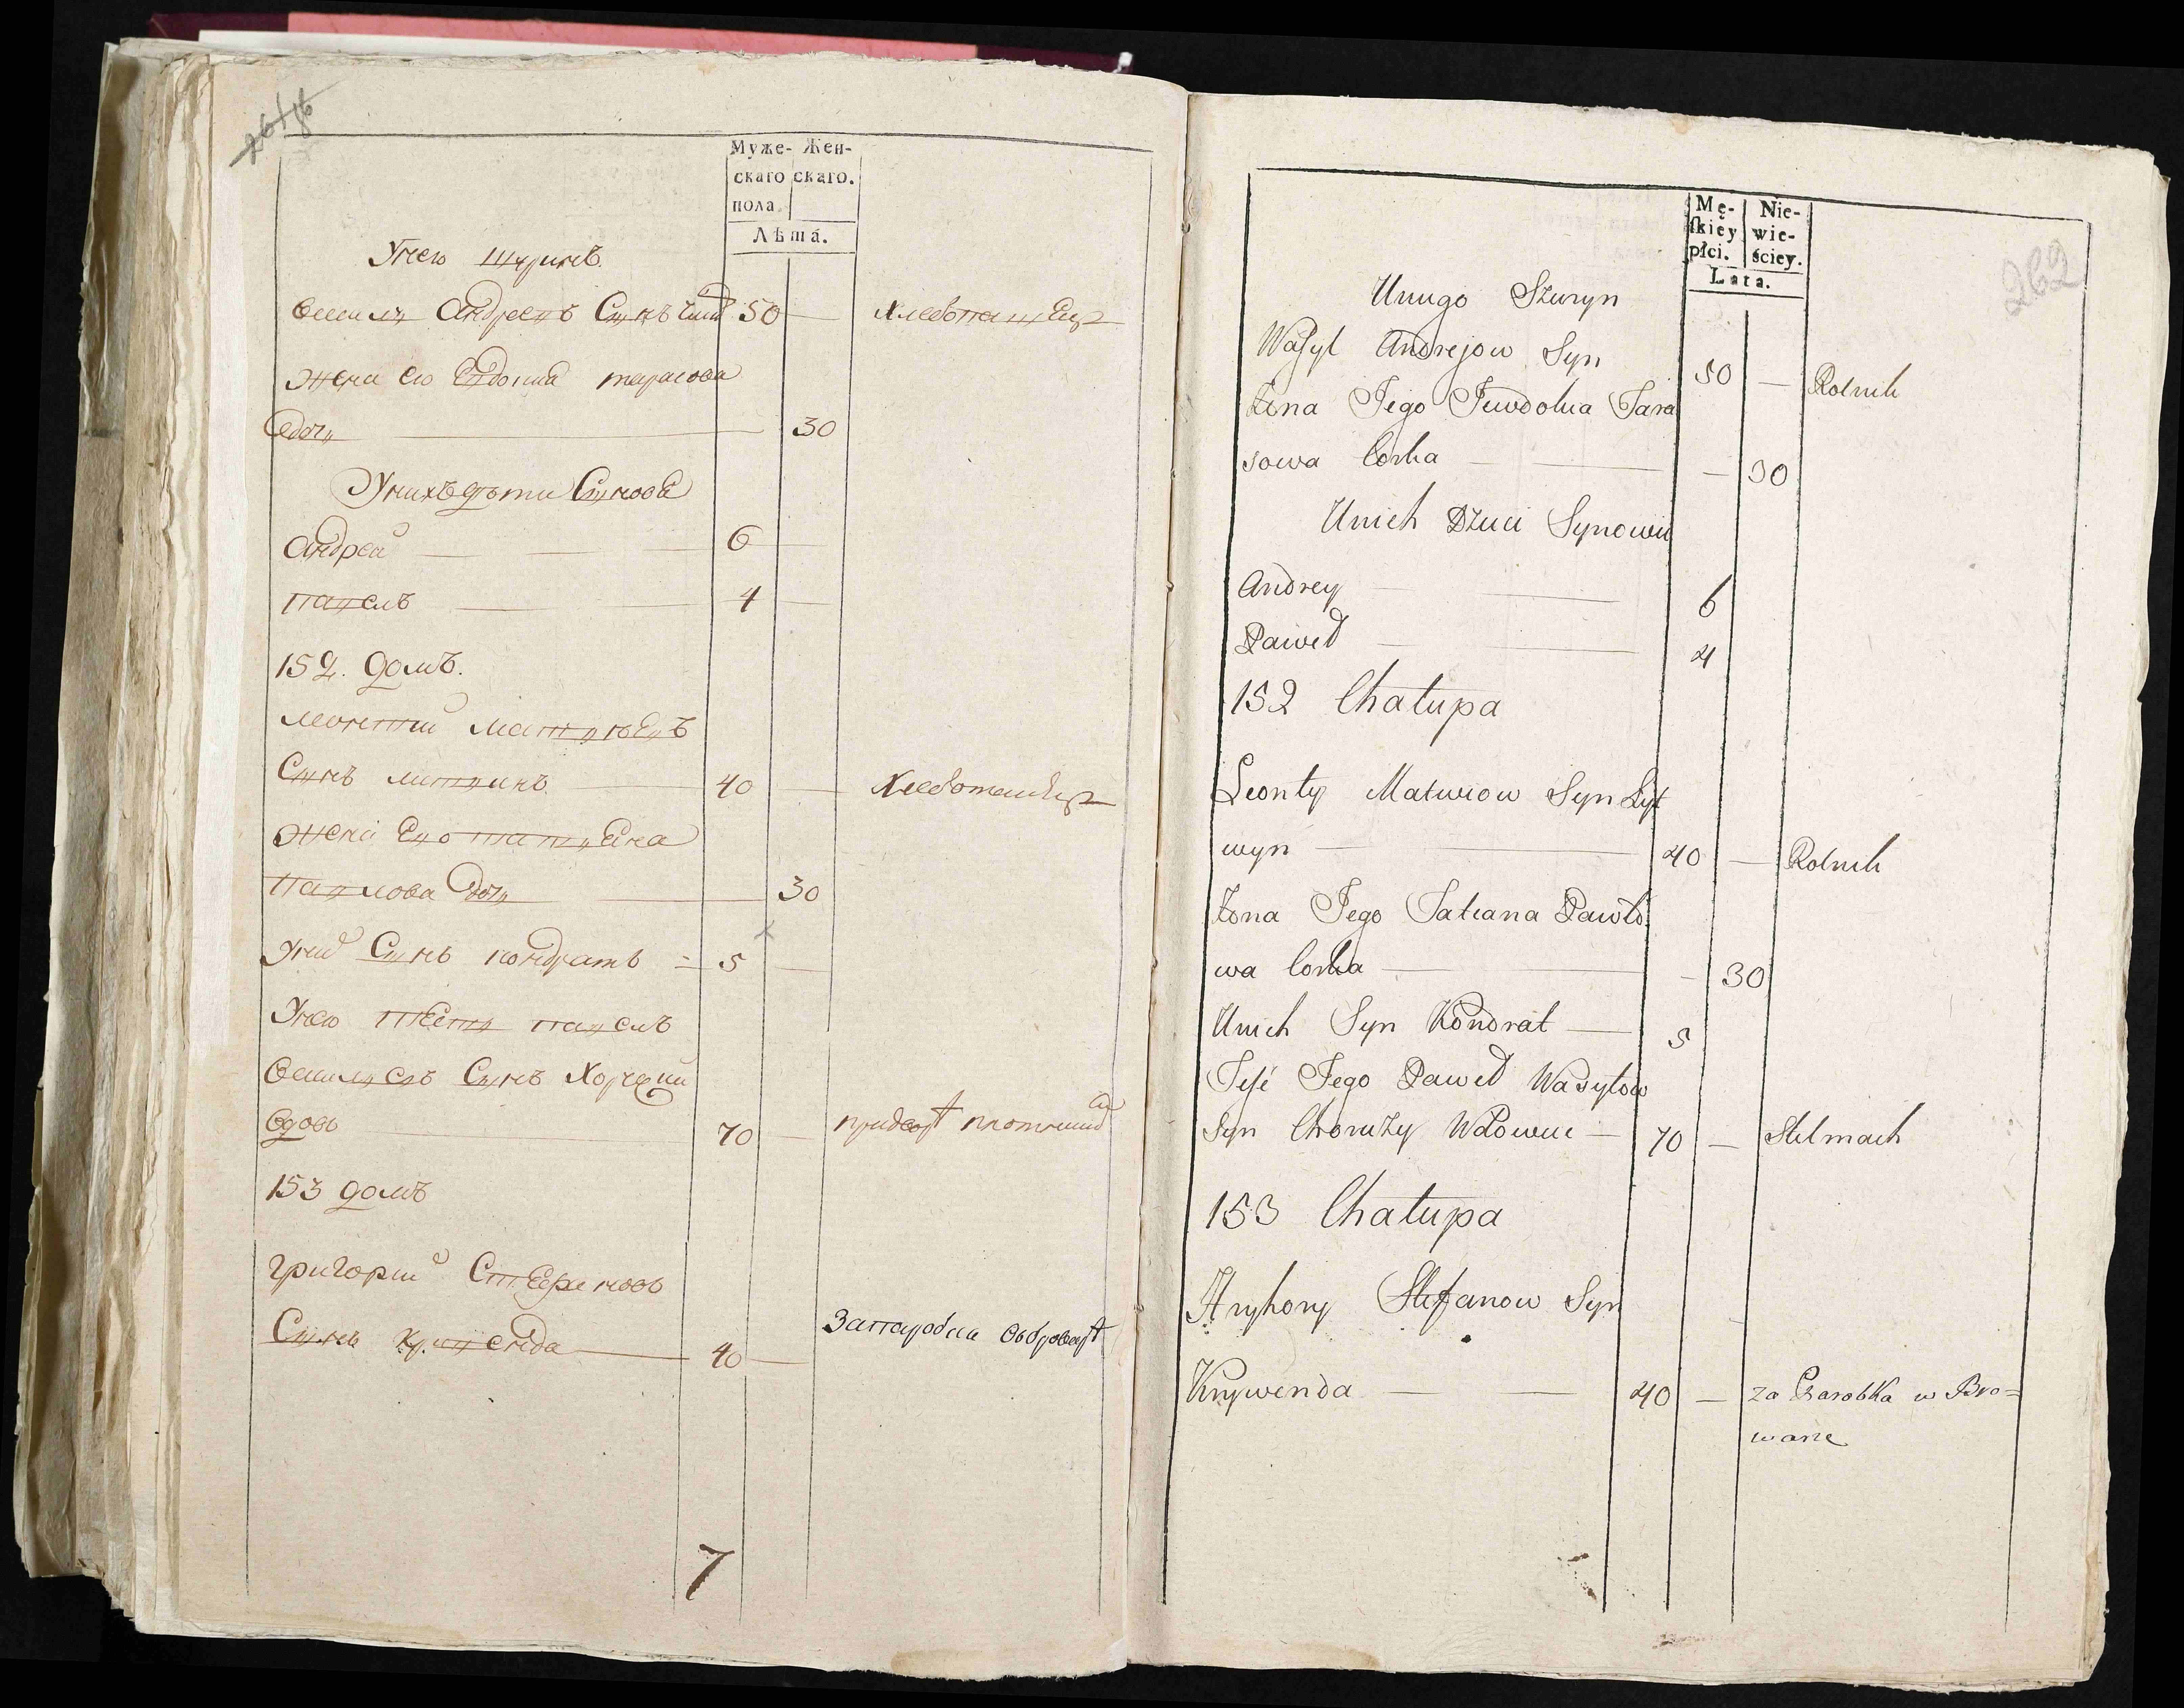 Муже- Жен-
скаго скаго.
пола
Лѣта.
Унего шуринъ
Василь Андреевъ Сынъ 50 — хлебопашецъ
Жена его Евдокиа тарасова
дочь — 30
Унихъ дѣти Синова
Андрей — 6 —
Павелъ — 4 —
152. домъ.
леонтий Матвѣевъ
Синъ литвинъ — 40 — Хлебопашецъ
Жена Ево татиана
Павлова дочь — 30
Унихъ Синъ кондратъ = 5 —
Унего тесть павелъ
Васильевъ Синъ Хоружий
вдовъ — 70 —
153 домъ
григорий Стефановъ
Синъ кривенда — 40 —
7
262
Mę- Nie-
ſkiey wie-
płci. ściey.
Lata.
Unugo Szuryn
Wasyl Andrejow Syn 50 — Rolnik
Żona Jego Jewdokia Tara
sowa Corka — — 30
Unich Dzieci Synowie
Andrey — 6
Paweł — 4
152 Chałupa
Leonty Matwiow Syn Lyt
wyn — 40 — Rolnik
Żona Jego Tatiana Pawło
wa Corka — — 30
Unich Syn Kondrat — 5
Teść Jego Paweł Wasylow
Syn Choruży Wdowiec — 70 — Stelmach
153 Chałupa
Hryhory Stefanow Syn
Krywenda — 40 — za Parobka w Bro=
warze